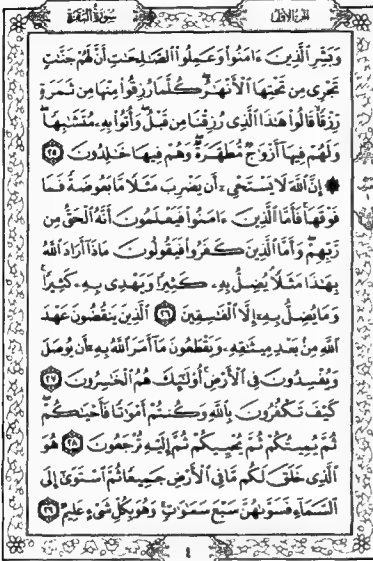 الجزء الأول سورة البقرة
وَبَشِّرِ ٱلَّذِينَ ءَامَنُوا۟ وَعَمِلُوا۟ ٱلصَّـٰلِحَـٰتِ أَنَّ لَهُمْ جَنَّـٰتٍ
تَجْرِى مِن تَحْتِهَا ٱلْأَنْهَـٰرُ ۖ كُلَّمَا رُزِقُوا۟ مِنْهَا مِن ثَمَرَةٍ
رِّزْقًا ۙ قَالُوا۟ هَـٰذَا ٱلَّذِى رُزِقْنَا مِن قَبْلُ ۖ وَأُتُوا۟ بِهِۦ مُتَشَـٰبِهًا ۖ
وَلَهُمْ فِيهَآ أَزْوَٰجٌ مُّطَهَّرَةٌ ۖ وَهُمْ فِيهَا خَـٰلِدُونَ ٢٥
۞ إِنَّ ٱللَّهَ لَا يَسْتَحْىِۦٓ أَن يَضْرِبَ مَثَلًا مَّا بَعُوضَةً فَمَا
فَوْقَهَا ۚ فَأَمَّا ٱلَّذِينَ ءَامَنُوا۟ فَيَعْلَمُونَ أَنَّهُ ٱلْحَقُّ مِن
رَّبِّهِمْ ۖ وَأَمَّا ٱلَّذِينَ كَفَرُوا۟ فَيَقُولُونَ مَاذَآ أَرَادَ ٱللَّهُ
بِهَـٰذَا مَثَلًا ۘ يُضِلُّ بِهِۦ كَثِيرًا وَيَهْدِى بِهِۦ كَثِيرًا ۚ
وَمَا يُضِلُّ بِهِۦٓ إِلَّا ٱلْفَـٰسِقِينَ ٢٦ ٱلَّذِينَ يَنقُضُونَ عَهْدَ
ٱللَّهِ مِنۢ بَعْدِ مِيثَـٰقِهِۦ وَيَقْطَعُونَ مَآ أَمَرَ ٱللَّهُ بِهِۦٓ أَن يُوصَلَ
وَيُفْسِدُونَ فِى ٱلْأَرْضِ ۚ أُو۟لَـٰٓئِكَ هُمُ ٱلْخَـٰسِرُونَ ٢٧
كَيْفَ تَكْفُرُونَ بِٱللَّهِ وَكُنتُمْ أَمْوَٰتًا فَأَحْيَـٰكُمْ ۖ
ثُمَّ يُمِيتُكُمْ ثُمَّ يُحْيِيكُمْ ثُمَّ إِلَيْهِ تُرْجَعُونَ ٢٨ هُوَ
ٱلَّذِى خَلَقَ لَكُم مَّا فِى ٱلْأَرْضِ جَمِيعًا ثُمَّ ٱسْتَوَىٰٓ إِلَى
ٱلسَّمَآءِ فَسَوَّىٰهُنَّ سَبْعَ سَمَـٰوَٰتٍ ۚ وَهُوَ بِكُلِّ شَىْءٍ عَلِيمٌ ٢٩
٤